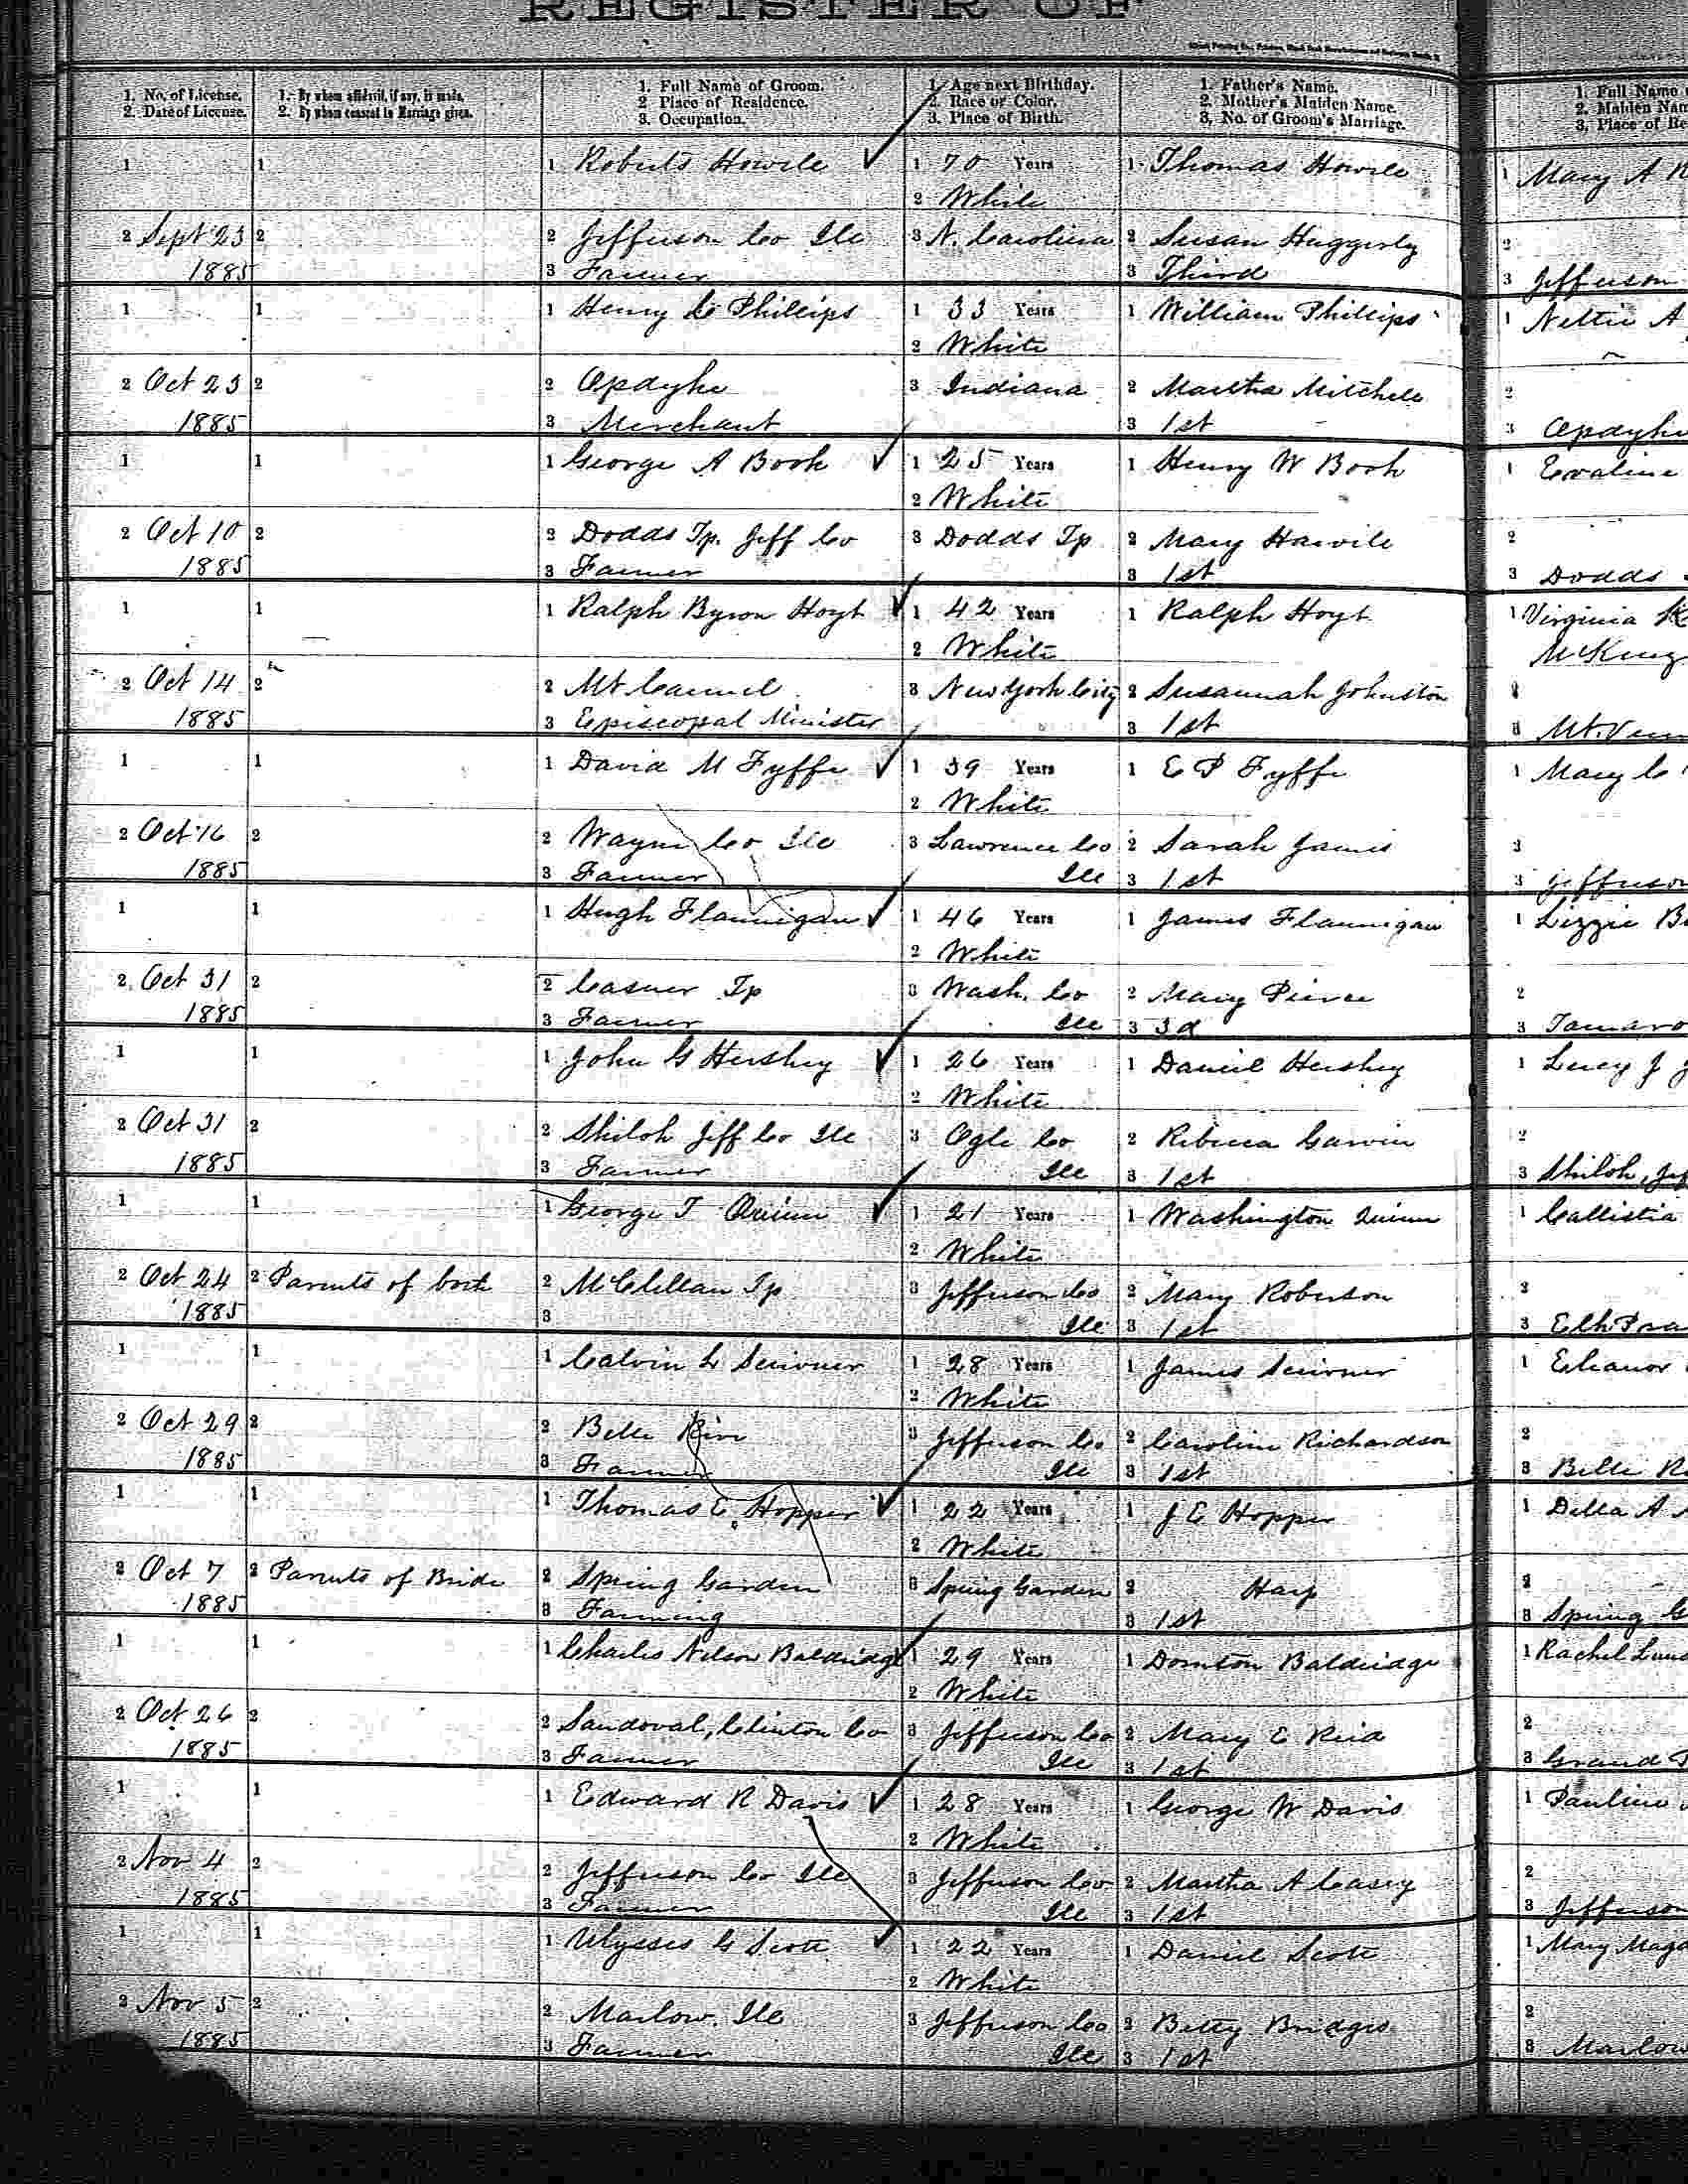 REGISTER OF
1. No. of License.
2. Date of License.
1. By whom affidavit, if any, is made.
2. By whom consent to Marriage given.
1. Full Name of Groom.
2 Place of Residence.
3. Occupation.
1. Age next Birthday.
2. Race or Color.
3. Place of Birth.
1. Father's Name.
2. Mother's Maiden Name.
3. No. of Groom's Marriage.
1. Full Name
2. Maiden Nam
3. Place of Re
1 1 1 Roberts Howile 1 70 Years 1 Thomas Howile 1 Mary A
2 White
2 Sept 23 2 2 Jefferson Co Ill 3 N. Carolina 2 Susan Haggerly 2
1885 3 Farmer 3 Third 3 Jefferson
1 1 1 Henry Phillips 1 33 Years 1 William Phillips 1 Nettie A
2 White
2 Oct 23 2 2 Opdyke 3 Indiana 2 Martha Mitchell 2
1885 3 Merchant 3 1st 3 Opdyke
1 1 1 George A Book 1 25 Years 1 Henry W Book 1 Evaline
2 White
2 Oct 10 2 2 Dodds Tp. Jeff Co 3 Dodds Tp 2 Mary Harvile 2
1885 3 Farmer 3 1st 3 Dodds
1 1 1 Ralph Byron Hoyt 1 42 Years 1 Ralph Hoyt 1 Virginia
2 White
2 Oct 14 2 2 Mt Carmel 3 New York City 2 Susannah Johnston 2
1885 3 Episcopal Minister 3 1st 3 Mt. Vern
1 1 1 David M Fyffe 1 39 Years 1 E P Fyffe 1 Mary C
2 White
2 Oct 16 2 2 Wayne Co Ill 3 Lawrence Co 2 Sarah James 2
1885 3 Farmer Ill 3 1st 3 Jefferson
1 1 1 Hugh Flannigan 1 46 Years 1 James Flannigan 1 Lizzie
2 White
2 Oct 31 2 2 Casner Tp 3 Wash. Co 2 Mary Pierce 2
1885 3 Farmer Ill 3 3d 3 Tamaro
1 1 1 John G Hershey 1 26 Years 1 Daniel Hershey 1 Lucy J
2 White
2 Oct 31 2 2 Shiloh Jeff Co Ill 3 Ogle Co 2 Rebecca Carvin 2
1885 3 Farmer Ill 3 1st 3 Shiloh, Jef
1 1 1 George T Quinn 1 21 Years 1 Washington Quinn 1 Callistia
2 White
2 Oct 24 2 Parents of both 2 McClellan Tp 3 Jefferson Co 2 Mary Roberson 2
1885 3 Ill 3 1st 3 Elk Pra
1 1 1 Calvin L Scrivner 1 28 Years 1 James Scrivner 1 Eleanor
2 White
2 Oct 29 2 2 Belle Rive 3 Jefferson Co 2 Caroline Richardson 2
1885 3 Farmer Ill 3 1st 3 Belle Ri
1 1 1 Thomas E. Hopper 1 22 Years 1 J E Hopper 1 Della A
2 White
2 Oct 7 2 Parents of Bride 2 Spring Garden 3 Spring Garden 2 Hays 2
1885 3 Farming 3 1st 3 Spring G
1 1 1 Charles Nelson Baldridge 1 29 Years 1 Dornton Baldridge 1 Rachel
2 White
2 Oct 26 2 2 Sandoval, Clinton Co 3 Jefferson Co 2 Mary E Reid 2
1885 3 Farmer Ill 3 1st 3 Grand
1 1 1 Edward R Davis 1 28 Years 1 George W Davis 1 Pauline
2 White
2 Nov 4 2 2 Jefferson Co Ill 3 Jefferson Co 2 Martha A Casey 2
1885 3 Farmer Ill 3 1st 3 Jefferson
1 1 1 Ulysses G Scott 1 22 Years 1 Daniel Scott 1 Mary Magd
2 White
2 Nov 5 2 2 Marlow. Ill 3 Jefferson Co 2 Betty Bridges 2
1885 3 Farmer Ill 3 1st 3 Marlow